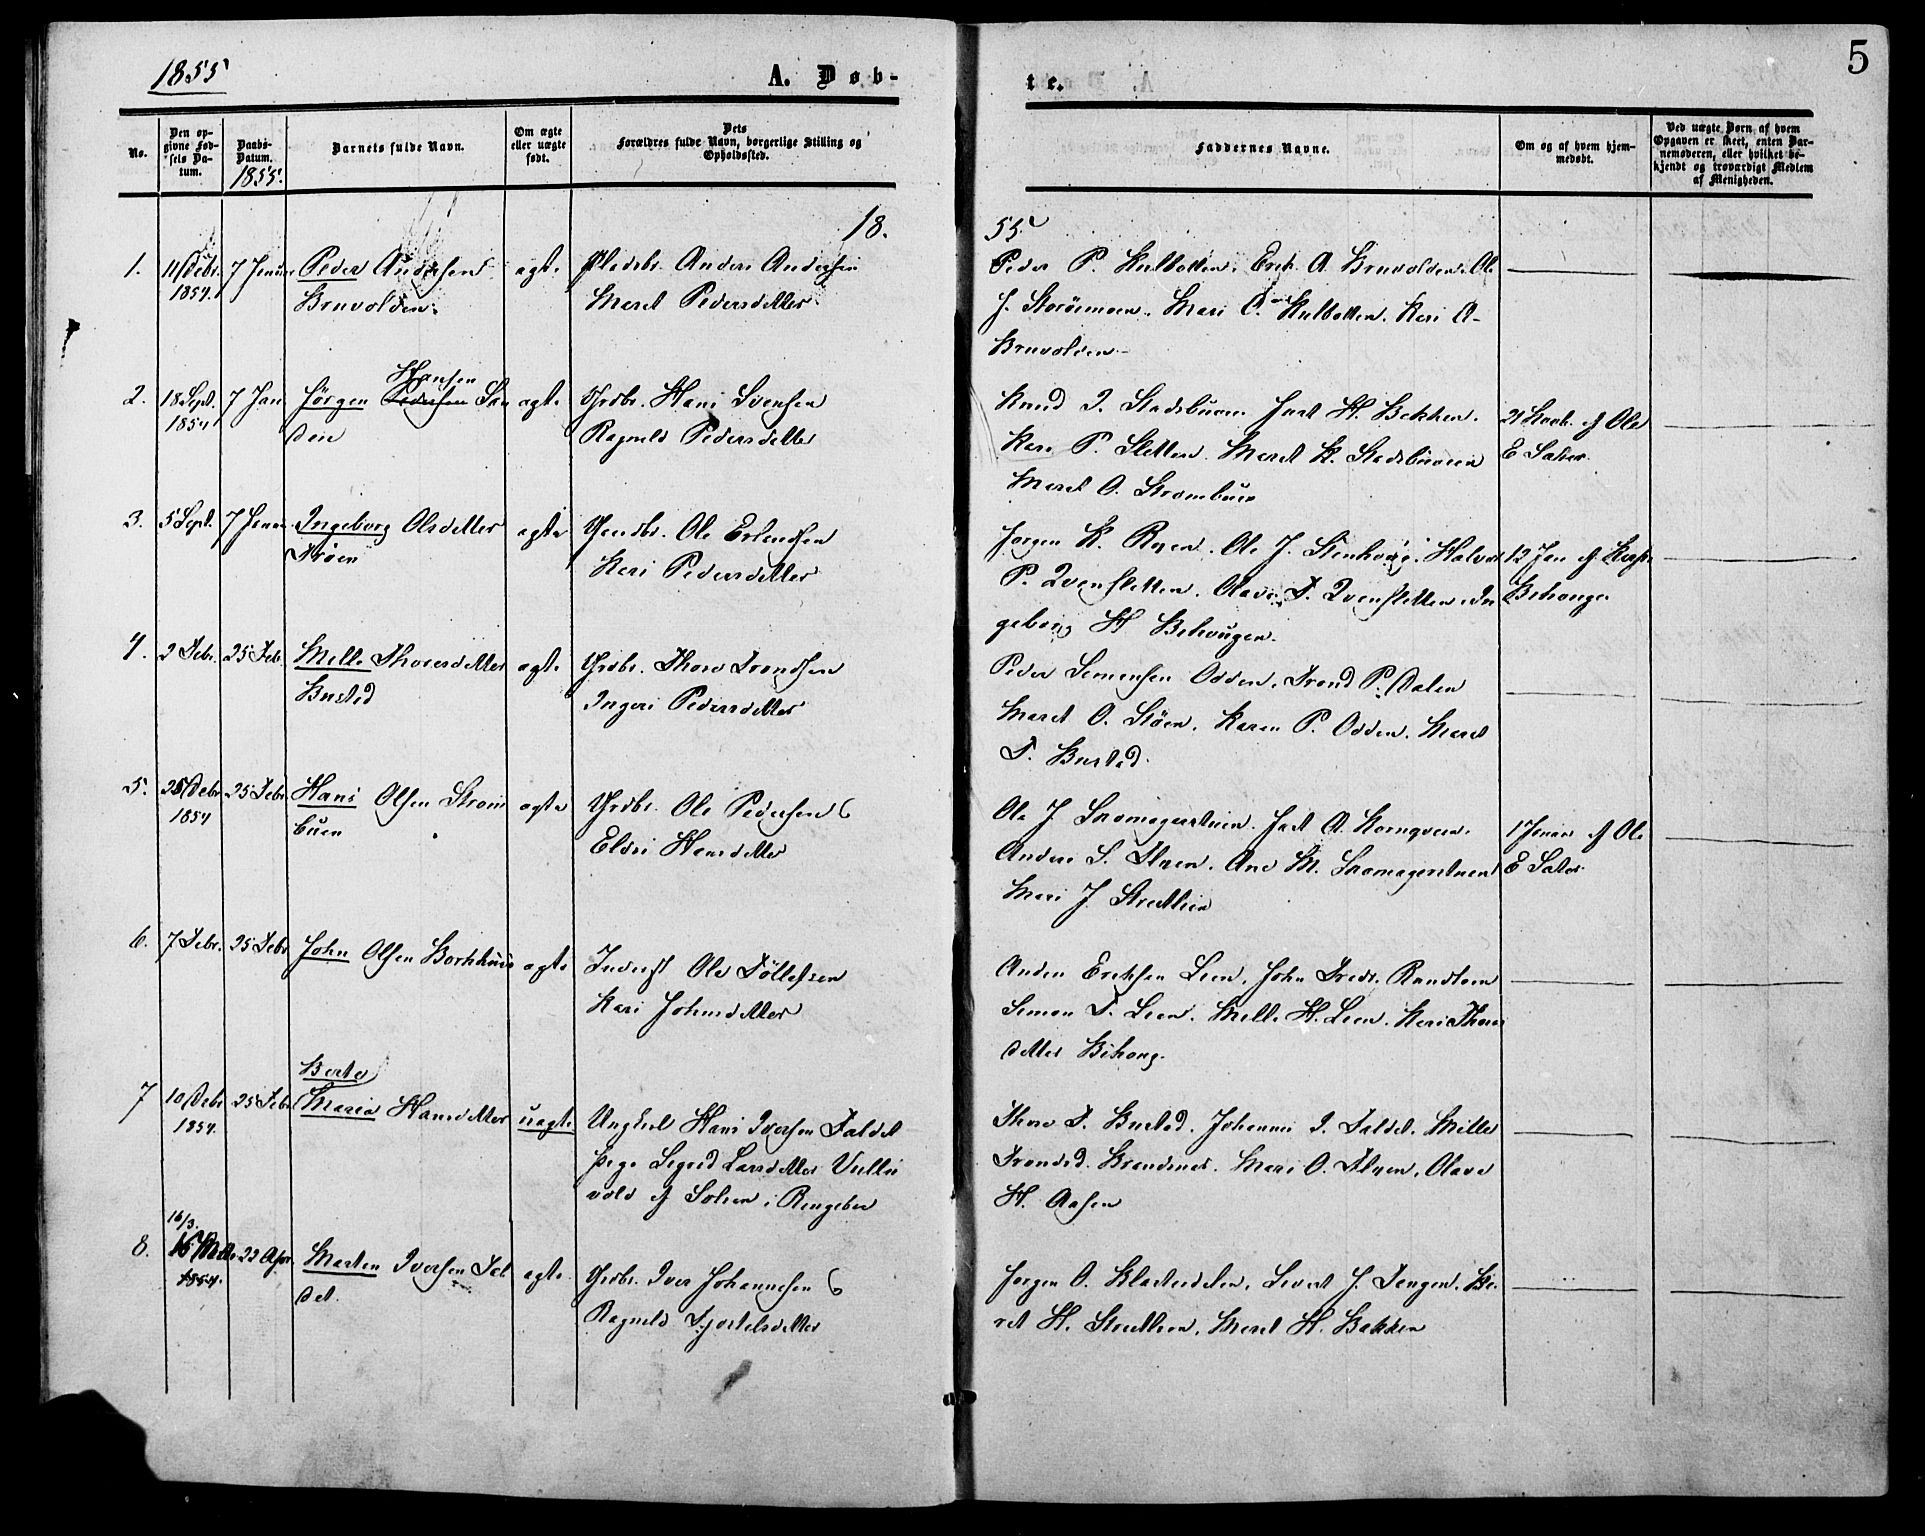 1855
A. Døb-
te.
5
No.
Den op-
givne Fød-
sels Da-
tum.
Daabs-
Datum.
1855.
Barnets fulde Navn.
Om ægte
eller uægte
født.
Dets
Forældres fulde Navn, borgerlige Stilling og
Opholdssted.
Faddernes Navne.
Om og af hvem hjem-
medøbt.
Ved uægte Børn af hvem
Opgaven er skeet, enten Bar-
nemoderen, eller hvilket be-
kjendt og troværdigt Medlem
af Menigheden.
18.
55
1.
11 Debr.
1854.
7 Januar
Peder Andersen
Bruvolden.
ægte
Pladsbr. Anders Andersen
Maret Pedersdatter
Peder P. Kulbotten. Erik A. Bruvolden. Ole
J. Storømoen. Mari O. Kulbotten. Kari A.
Bruvolden
2.
18 Sept.
1854
7 Jan
Hansen
Jörgen Pedersen
ægte
Grdbr. Hans Svensen
Ragnild Pedersdatter
Knud I. Stadsbuøen Jart H. Bakken.
Kari P. Sletten. Maret K. Stadsbuøen
Maret O. Strømbuen
21 af Ole
E Sæter
3.
5 Sept.
7 Januar
Ingeborg Olsdatter
Trøen
ægte
Gaardbr. Ole Erlendsen
Kari Pedersdatter
Jørgen K. Ole J. Steenhoug. Halvor
P. Qvensletten. Olava T. Qvensletten. In
geborg H Behougen.
12 Jan af
Behouge
4.
2 Febr.
25 Feb.
Mille Thoresdatter
Bustad
ægte
Grdbr. Thore Trondsen
Ingeri Pedersdatter
Peder Simensen Odden. Trond P. Dalen
Maret O. Støen. Karen P. Odden. Maret
T. Bustad.
5.
Debr
1854
25 Febr
Hans Olsen Strøm
buen
ægte
Grdbr. Ole Pedersen
Eldri Hansdatter
Ole J. Jart A.
Anders S. Ane M.
Mari J. Streitlien
1 Januar af Ole
E Sæter
6.
7 Febr.
25 Febr
John Olsen Borkhuus
ægte
Inderst Ole Tøllefsen
Kari Johnsdatter
Anders Eriksen Lien. John Fredr. Randmæl
Simon T. Lien. Mille H. Lien. Kari Thores
datter Bihoug.
7
10 Debr
1854.
25 Febr
Berte
Maria Hansdatter
uægte
Ungkarl Hans Iversen Faldet
Pige Sigrid Larsdatter Vulle
vold af Solien i Ringebu
Thore T. Bustad. Johannes I. Faldet. Mille
Trondsd. Brændmoe. Mari O. Olava
H. Aasen
8.
16/3.
1854.
22 Apr.
Morten Iversen Fal
det.
ægte
Grdbr. Iver Johannesen
Ragnild Kjostelsdatter
Jørgen O. Sivert J. Tangen. Be
ret H. Streitlien. Maret H. Bakken